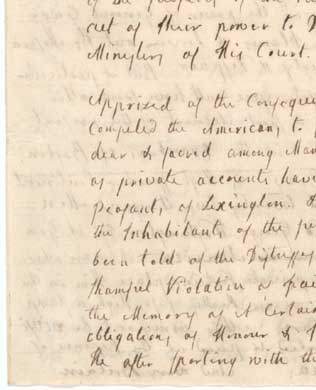 of the people of the
out of their power to
Ministers of His Court.
Apprized of the Conseque
Compeled the Americans, to
dear & sacred among Man
as private accounts have
Peasants, of Lexington.
the Inhabitants, of the
been told of the Distresses
shamfull Violation a
the Memory of it Certain
obligations, of Honour &
He after parting with the